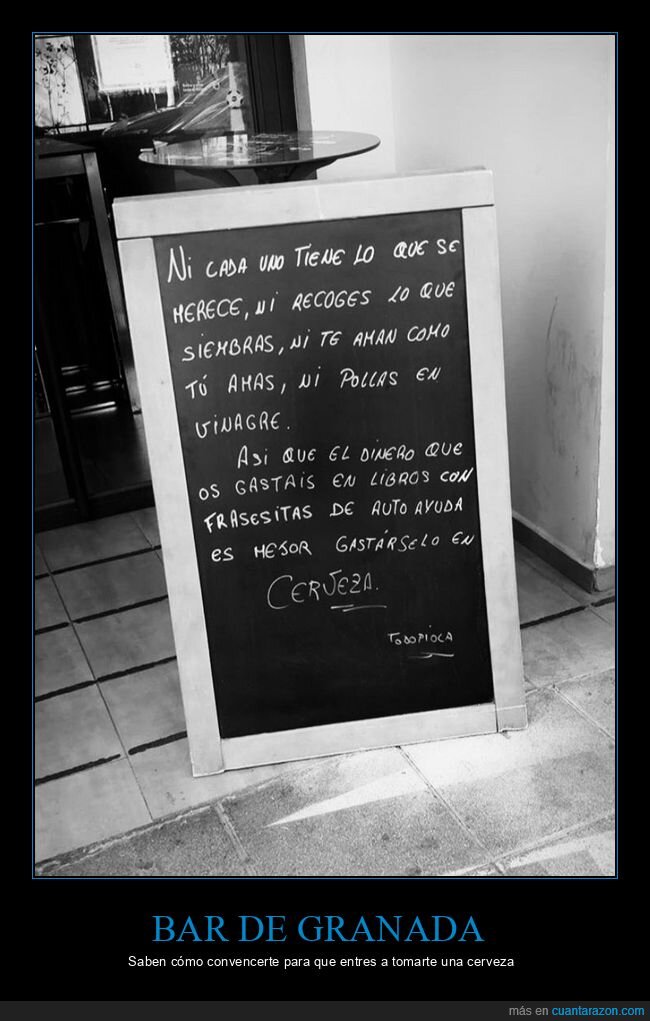 Ni CADA UNO TIENE LO QUE SE
MERECE, Ni RECOGES LO QUE
SIEMBRAS, Ni TE AMAN COMO
TÚ AMAS, Ni POLLAS EN
VINAGRE.
ASI QUE EL DINERO QUE
OS GASTAIS EN LIBROS CON
FRASESITAS DE AUTO AYUDA
es MEJOR GASTÁRSELO EN
CERVEZA.
TODOPIOCA
BAR DE GRANADA
Saben cómo convencerte para que entres a tomarte una cerveza
más en cuantarazon.com